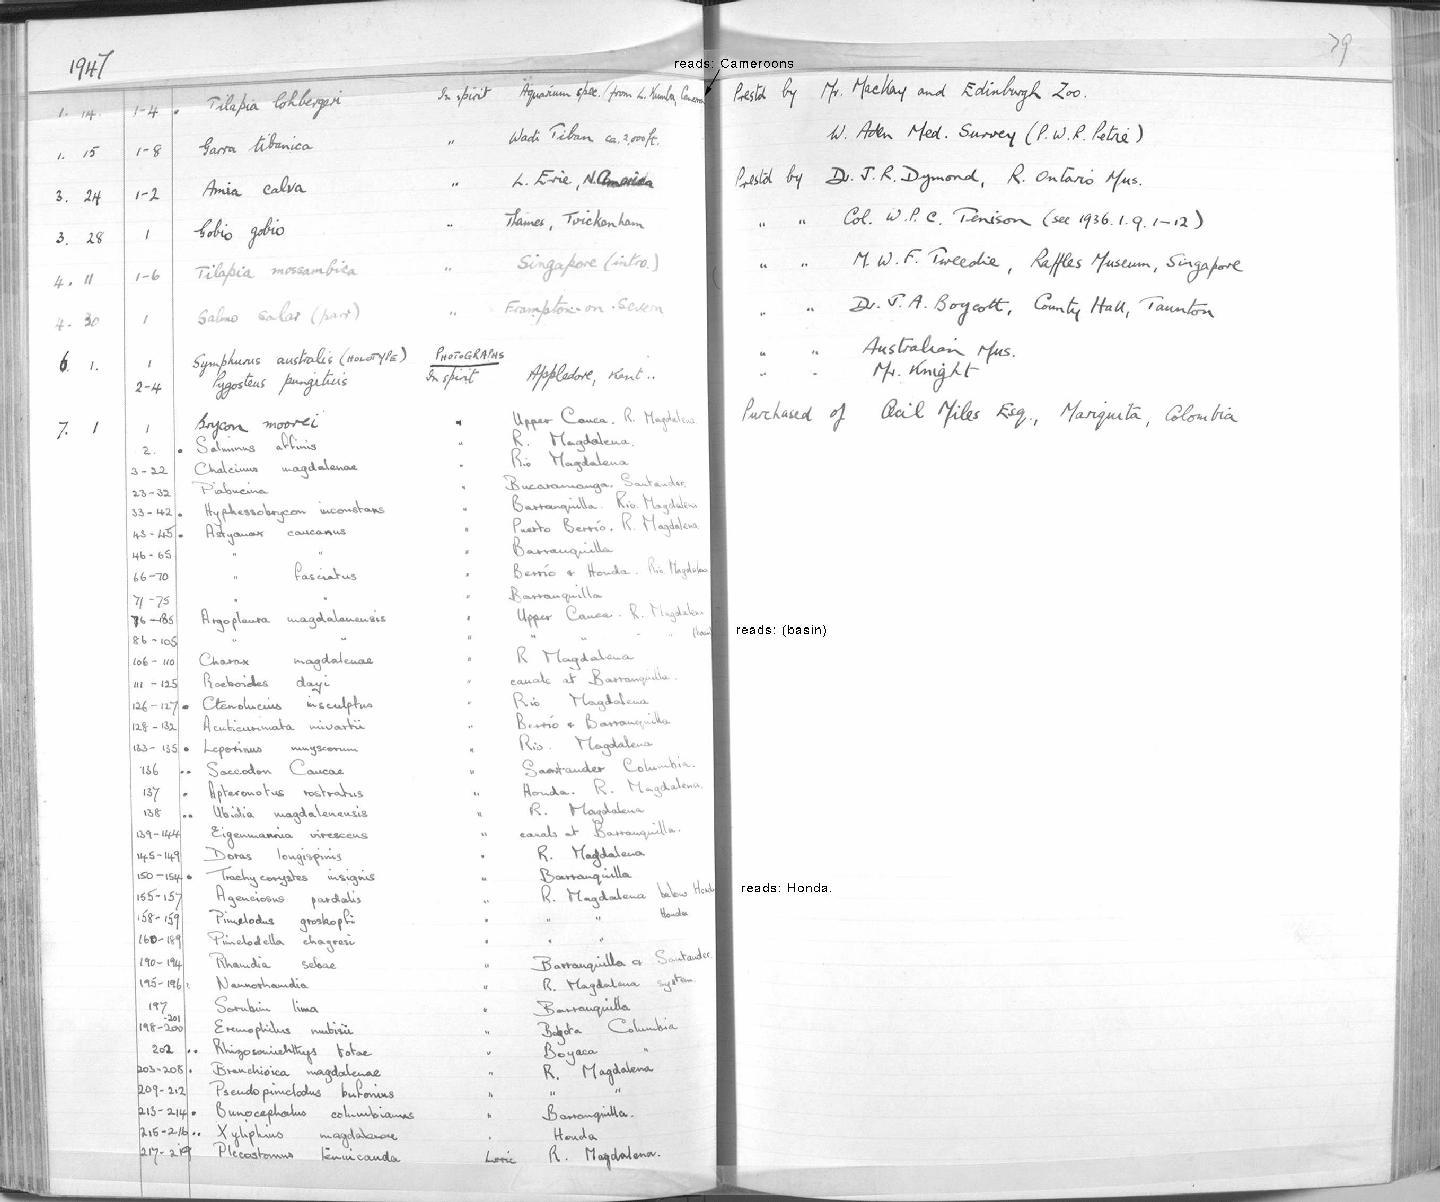 1947
79
reads: Cameroons
1. 14. 1-4 . Tilapia lohbergeri In spirit Aquarium spec. (from L. Kumba, Cameroon Prestd by Mr. Mackay and Edinburgh Zoo.
1. 15 1-8 Garra tibanica " Wadi Tiban ca. 2,000 ft. W. Aden Med. Survey (P.W.R. Petrie)
3. 24 1-2 Amia calva " L. Erie, N. America Prestd by Dr. J.R. Dymond, R. Ontario Mus.
3. 28 1 Gobio gobio " Thames, Twickenham " " Col. W.P.C. Tenison (see 1936.1.9.1-12)
4. 11 1-6 Tilapia mossambica " Singapore (intro.) " " M.W.F. Tweedie, Raffles Museum, Singapore
4. 30 1 Salmo salar (parr) " Frampton-on-Severn " " Dr. J.A. Boycott, County Hall, Taunton
6. 1. 1 Symphurus australis (HOLOTYPE) PHOTOGRAPHS " " Australian Mus.
2-4 Pygosteus pungitius In spirit Appledore, Kent.. " " Mr. Knight
7. 1 1 Brycon moorei " Upper Cauca. R. Magdalena. Purchased of Cecil Miles Esq., Mariquita, Colombia
2. . Salminus affinis " R. Magdalena.
3-22 Chalcinus magdalenae " Rio Magdalena
23-32 Piabucina " Bucaramanga. Santander.
33-42 . Hyphessobrycon inconstans " Barranquilla. Rio. Magdalena
43-45 . Astyanax caucanus " Puerto Berrío. R. Magdalena
46-65 " " " Barranquilla
66-70 " fasciatus " Berrío & Honda. Rio Magdalena
71-75 " " " Barranquilla
76-85 Argopleura magdalenensis " Upper Cauca. R. Magdalena
86-105 " " " " " " " (basin reads: (basin)
106-110 Charax magdalenae " R Magdalena
111-125 Roeboides dayi " canals at Barranquilla.
126-127 . Ctenolucius insculptus " Rio Magdalena
128-132 Acuticurimata mivartii " Berrío & Barranquilla
133-135 . Leporinus muyscorum " Rio. Magdalena
136 .. Saccodon Caucae " Santander Columbia.
137 . Apteronotus rostratus " Honda. R. Magdalena.
138 .. Ubidia magdalenensis " R. Magdalena
139-144 Eigenmannia virescens " canals at Barranquilla.
145-149 Doras longispinis " R. Magdalena
150-154 . Trachycorystes insignis " Barranquilla
155-157 Ageneiosus pardalis " R. Magdalena below Honda reads: Honda.
158-159 Pimelodus groskopfi " " " Honda
160-189 Pimelodella chagresi " " "
190-194 Rhamdia sebae " Barranquilla & Santander.
195-196 . Nannorhamdia " R. Magdalena system
197 Sorubim lima " Barranquilla
198-200 -201 Eremophilus mutisii " Bogota Columbia
202 .. Rhizosomichthys totae " Boyaca "
203-208 . Branchioica magdalenae " R. Magdalena
209-212 Pseudopimelodus bufonius " " "
213-214 . Bunocephalus columbianus " Barranquilla.
215-216 .. Xyliphius magdalenae " Honda
217-219 Plecostomus tenuicauda Loric R. Magdalena.